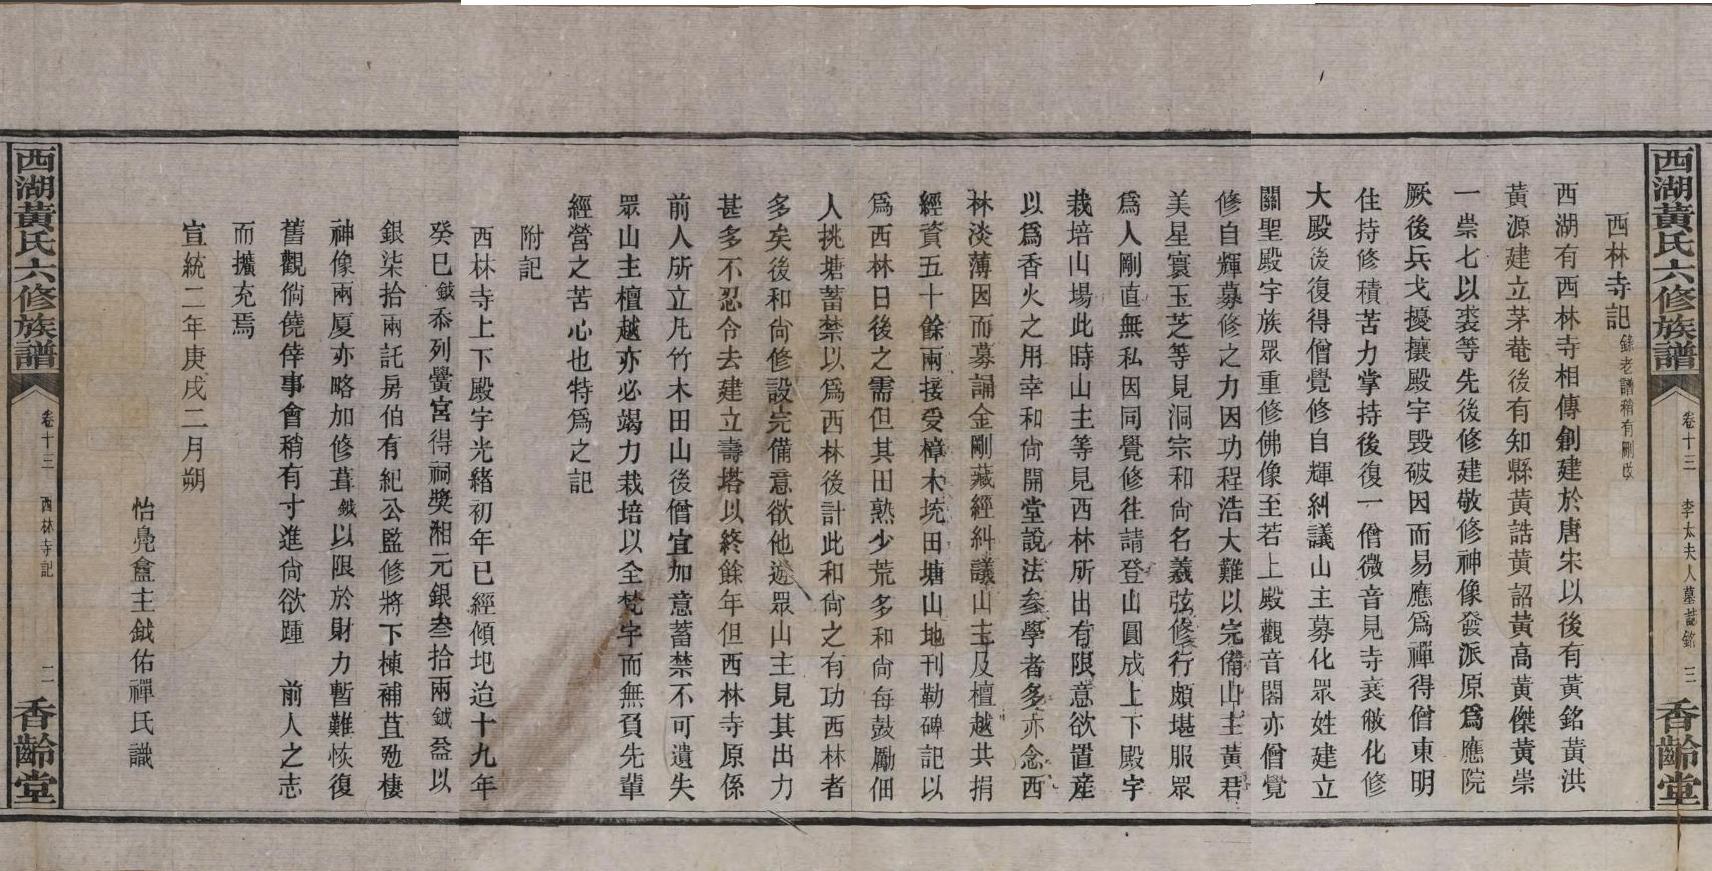 西湖黃氏六修族譜 卷十三 李太夫人墓誌銘 三 香齡堂
西林寺記 錄老譜稍有刪改
西湖有西林寺相傳創建於唐宋以後有黃銘黃洪
黃源建立茅菴後有知縣黃誥黃詔黃高黃傑黃崇
一崇七以裘等先後修建敬修神像發派原爲應院
厥後兵戈擾攘殿宇毀破因而易應爲禪得僧東明
住持修積苦力掌持後復一僧微音見寺衰敝化修
大殿後復得僧覺修自輝糾議山主募化眾姓建立
關聖殿宇族眾重修佛像至若上殿觀音閣亦僧覺
修自輝募修之力因功程浩大難以完備山主黃君
美星寰玉芝等見洞宗和尚名義弦修行頗堪服眾
爲人剛直無私因同覺修往請登山圓成上下殿宇
栽培山場此時山主等見西林所出有限意欲置産
以爲香火之用幸和尚開堂說法叅學者多亦念西
林淡薄因而募誦金剛藏經糾議山主及檀越共捐
經資五十餘兩接受樟木坑田塘山地刊勒碑記以
爲西林日後之需但其田熟少荒多和尚每鼓勵佃
人挑塘蓄禁以爲西林後計此和尚之有功西林者
多矣後和尚修設完備意欲他遊眾山主見其出力
甚多不忍令去建立壽塔以終餘年但西林寺原係
前人所立凡竹木田山後僧宜加意蓄禁不可遺失
眾山主檀越亦必竭力栽培以全梵宇而無負先輩
經營之苦心也特爲之記
附記
西林寺上下殿宇光緒初年已經傾圯迨十九年
癸巳鉞忝列黌宮得祠獎湘元銀叁拾兩鉞益以
銀柒拾兩託房伯有紀公監修將下棟補苴勉棲
神像兩厦亦略加修葺鉞以限於財力暫難恢復
舊觀倘僥倖事會稍有寸進尚欲踵 前人之志
而擴充焉
宣統二年庚戌二月朔
怡堯盦主鉞佑禪氏識
西湖黃氏六修族譜 卷十三 西林寺記 二 香齡堂